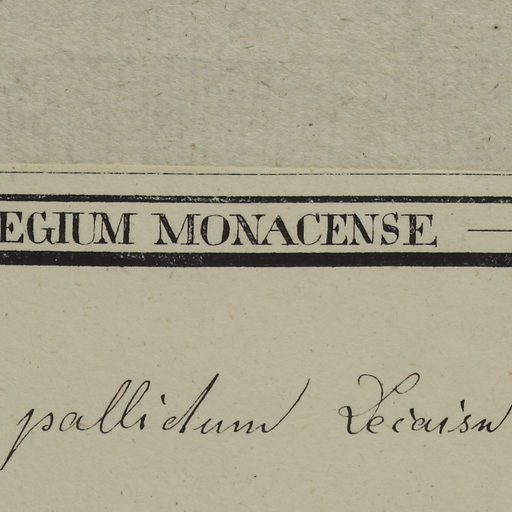 EGIUM MONACENSE
pallidum Decaisn